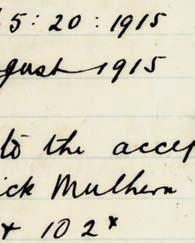 5:20:1915
ugust 1915
to the accep
ick Mulhern
102